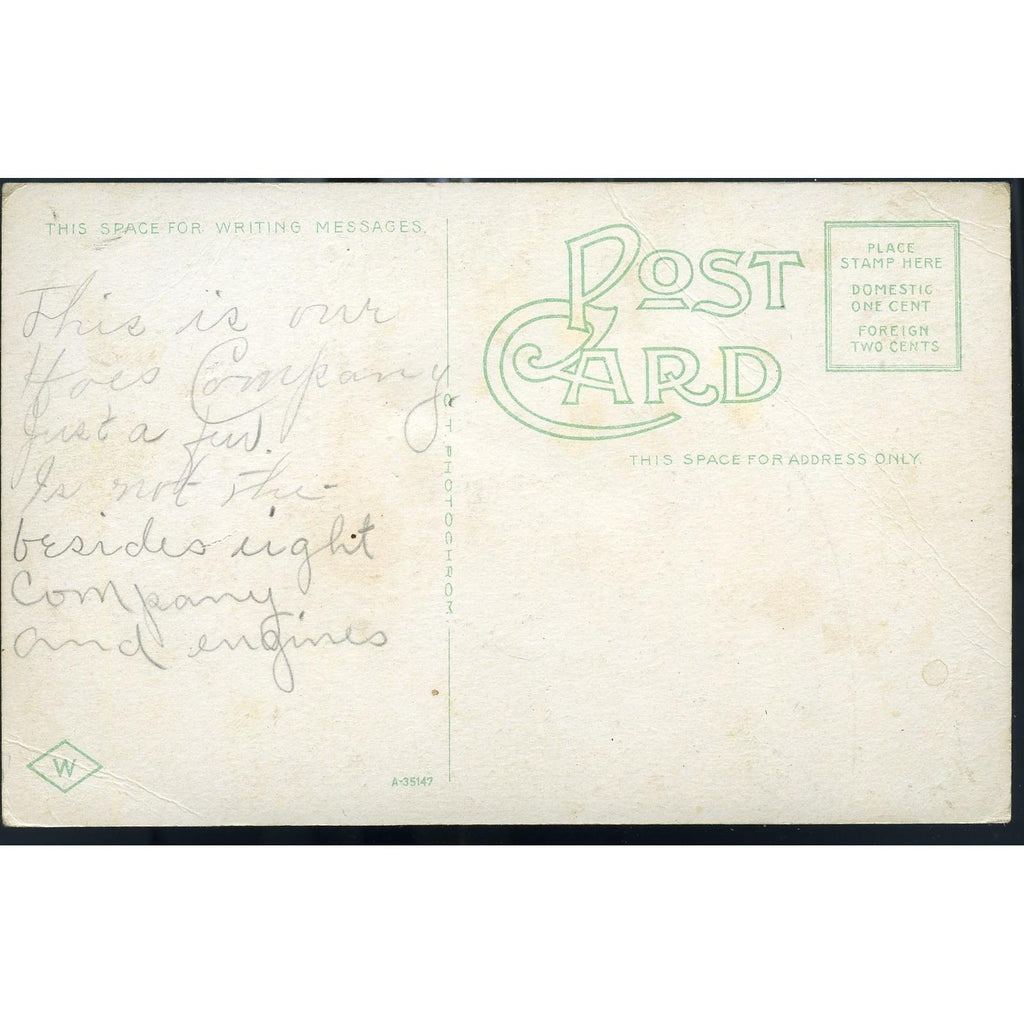 THIS SPACE FOR WRITING MESSAGES.
This is our
Hoes Company
Just a few.
Is not the
besides eight
Company
and engines
W
A-35147
C T PHOTOCHROM
POST
CARD
THIS SPACE FOR ADDRESS ONLY.
PLACE
STAMP HERE
DOMESTIC
ONE CENT
FOREIGN
TWO CENTS